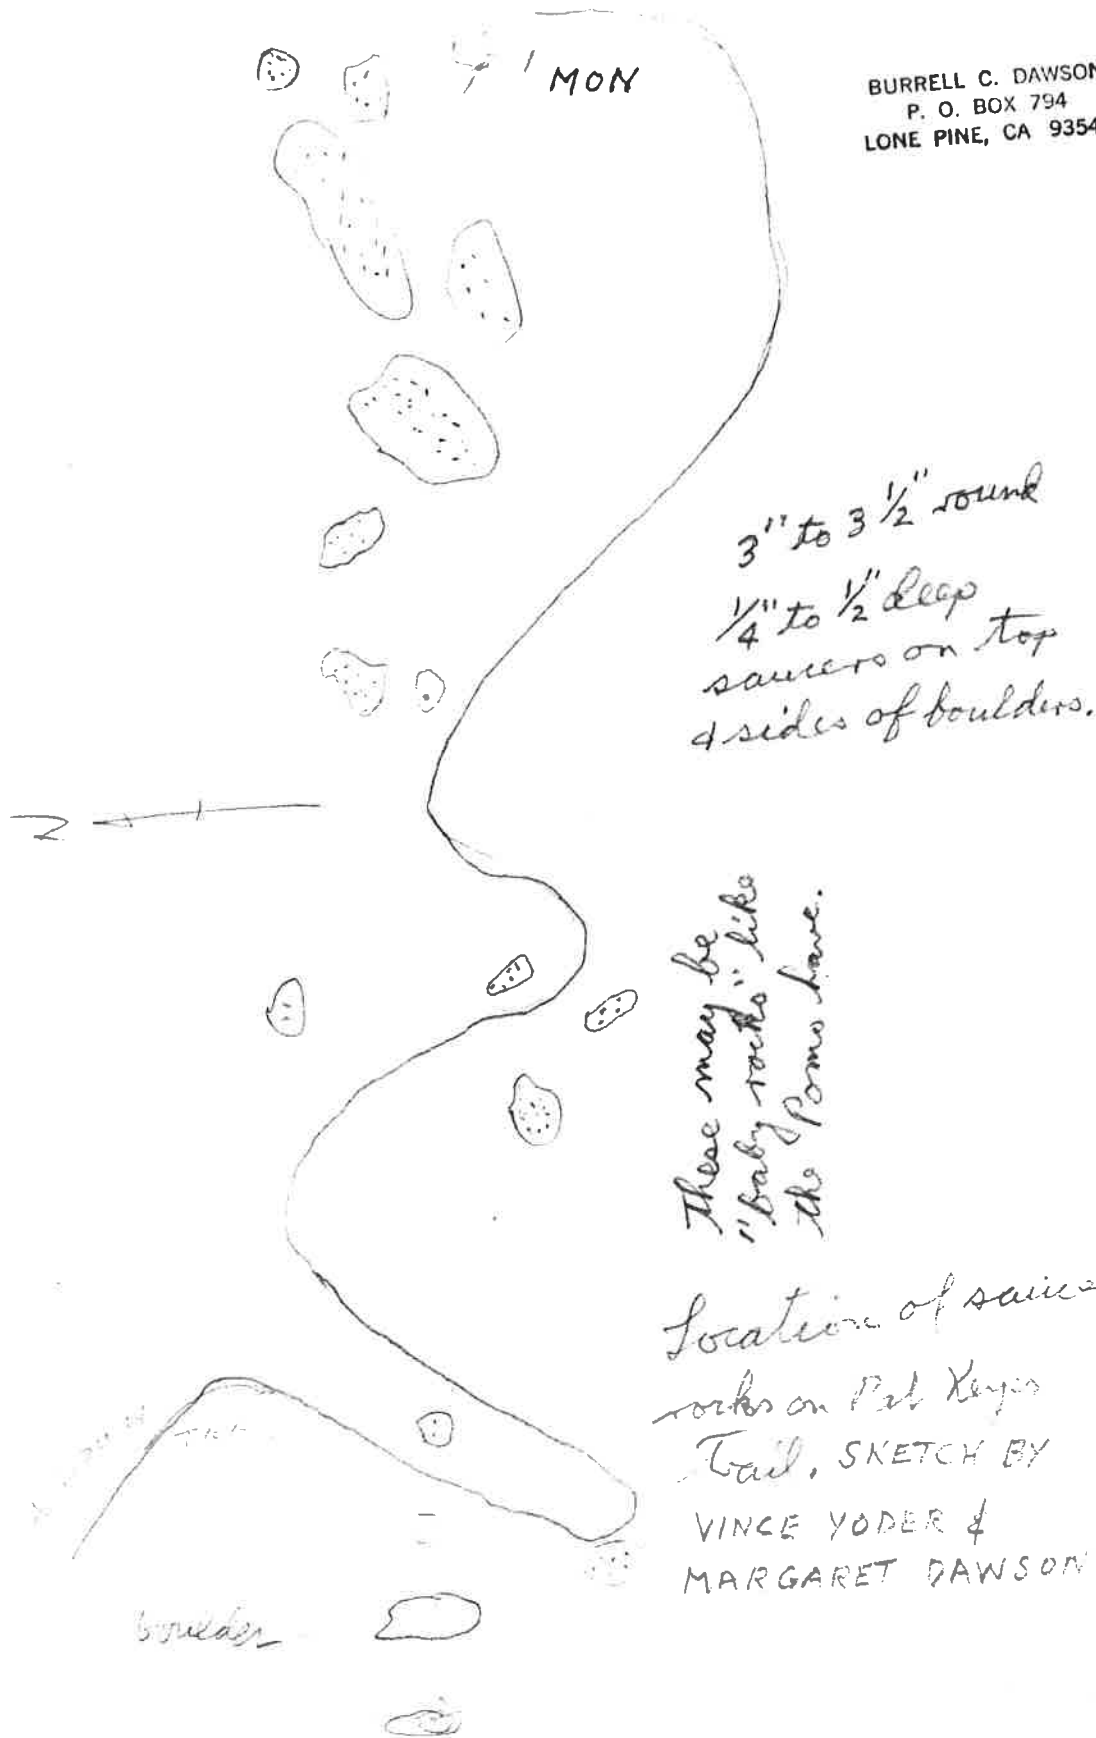 MON
BURRELL C. DAWSON
P. O. BOX 794
LONE PINE, CA 9354
3" to 3 1/2" round
1/4" to 1/2" deep
saucers on top
& sides of boulders.
N
These may be
"baby rocks" like
the Pomo have.
Location of sauce
rocks on Pat Keyes
Trail. SKETCH BY
VINCE YODER &
MARGARET DAWSON
boulder